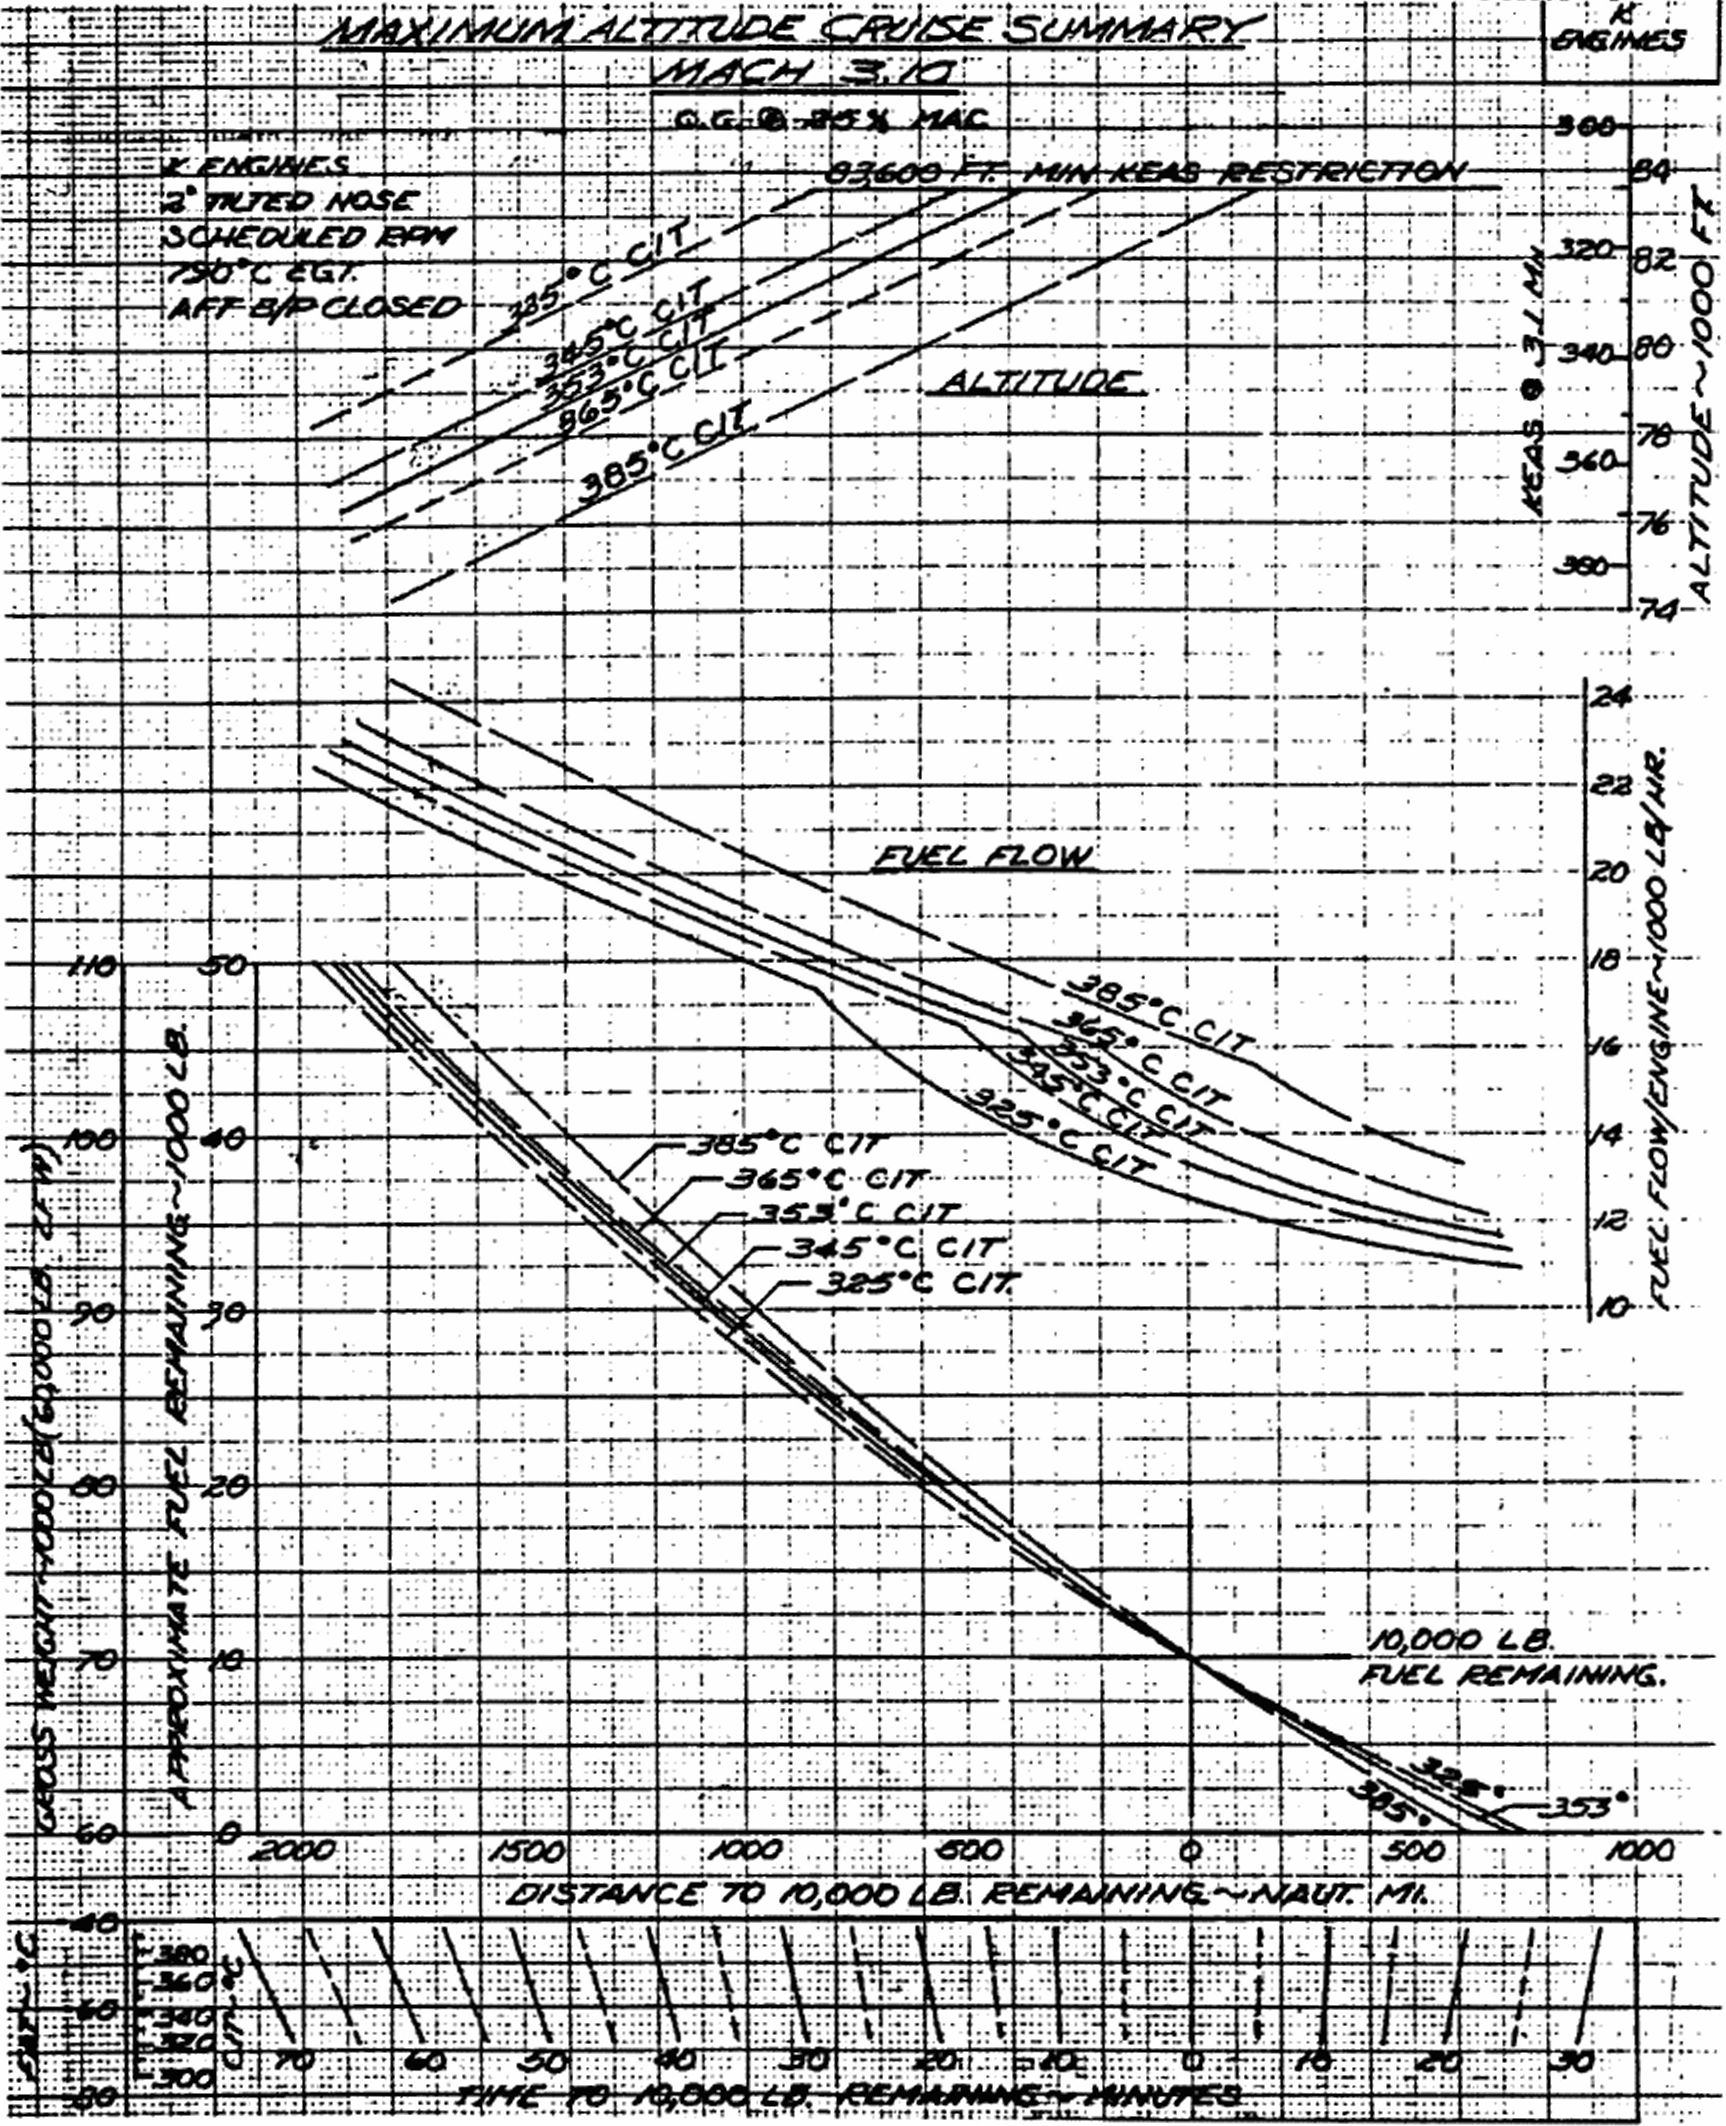 MAXIMUM ALTITUDE CRUISE SUMMARY
MACH 3.10
C.G. @ 25% MAC
K
ENGINES
K ENGINES
2° TILTED NOSE
SCHEDULED RPM
790°C EGT.
AFT B/P CLOSED
83,600 FT. MIN KEAS RESTRICTION
°C CIT
345°C CIT
353°C CIT
365°C CIT
385°C CIT
ALTITUDE
300
320
340
360
380
KEAS @ 3.1 MN
84
82
80
78
76
74
ALTITUDE ~ 1000 FT
FUEL FLOW
385°C CIT
365°C CIT
353°C CIT
345°C CIT
325°C CIT
24
22
20
18
16
14
12
10
FUEL FLOW/ENGINE ~ 1000 LB/HR.
110
100
90
80
70
60
GROSS WEIGHT ~ 1000 LB (60,000 LB. ZFW)
50
40
30
20
10
0
APPROXIMATE FUEL REMAINING ~ 1000 LB.
385°C CIT
365°C CIT
353°C CIT
345°C CIT
325°C CIT.
10,000 LB.
FUEL REMAINING.
325°
353°
385°
2000 1500 1000 500 0 500 1000
DISTANCE TO 10,000 LB. REMAINING ~ NAUT. MI.
40
60
80
380
360
340
320
300
CIT ~ °C
70 60 50 40 30 20 10 0 10 20 30
TIME TO 10,000 LB. REMAINING ~ MINUTES